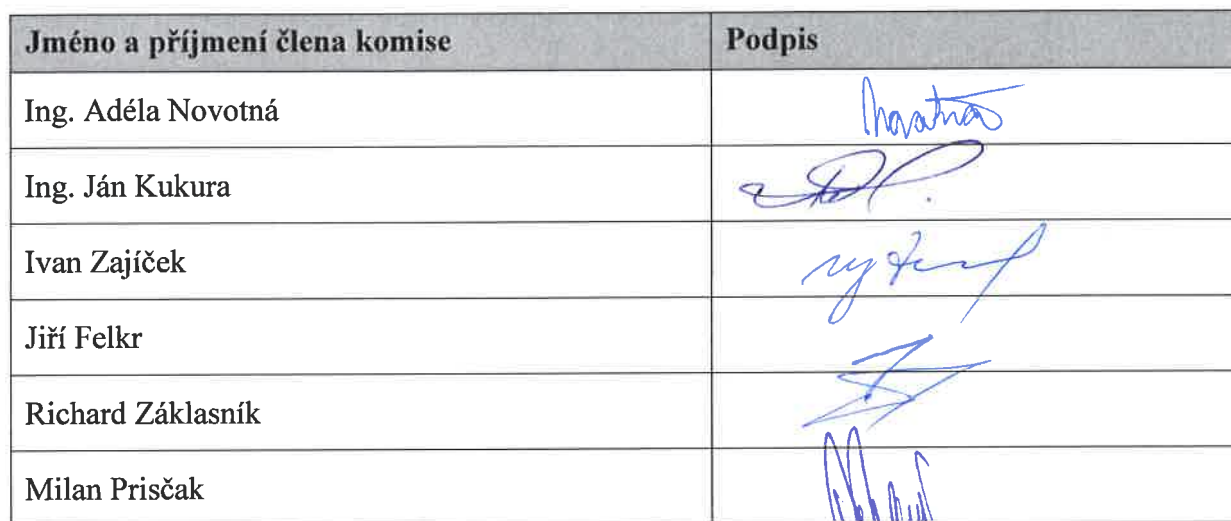 Jméno a příjmení člena komise Podpis
Ing. Adéla Novotná Novotná
Ing. Ján Kukura
Ivan Zajíček
Jiří Felkr
Richard Záklasník
Milan Prisčak